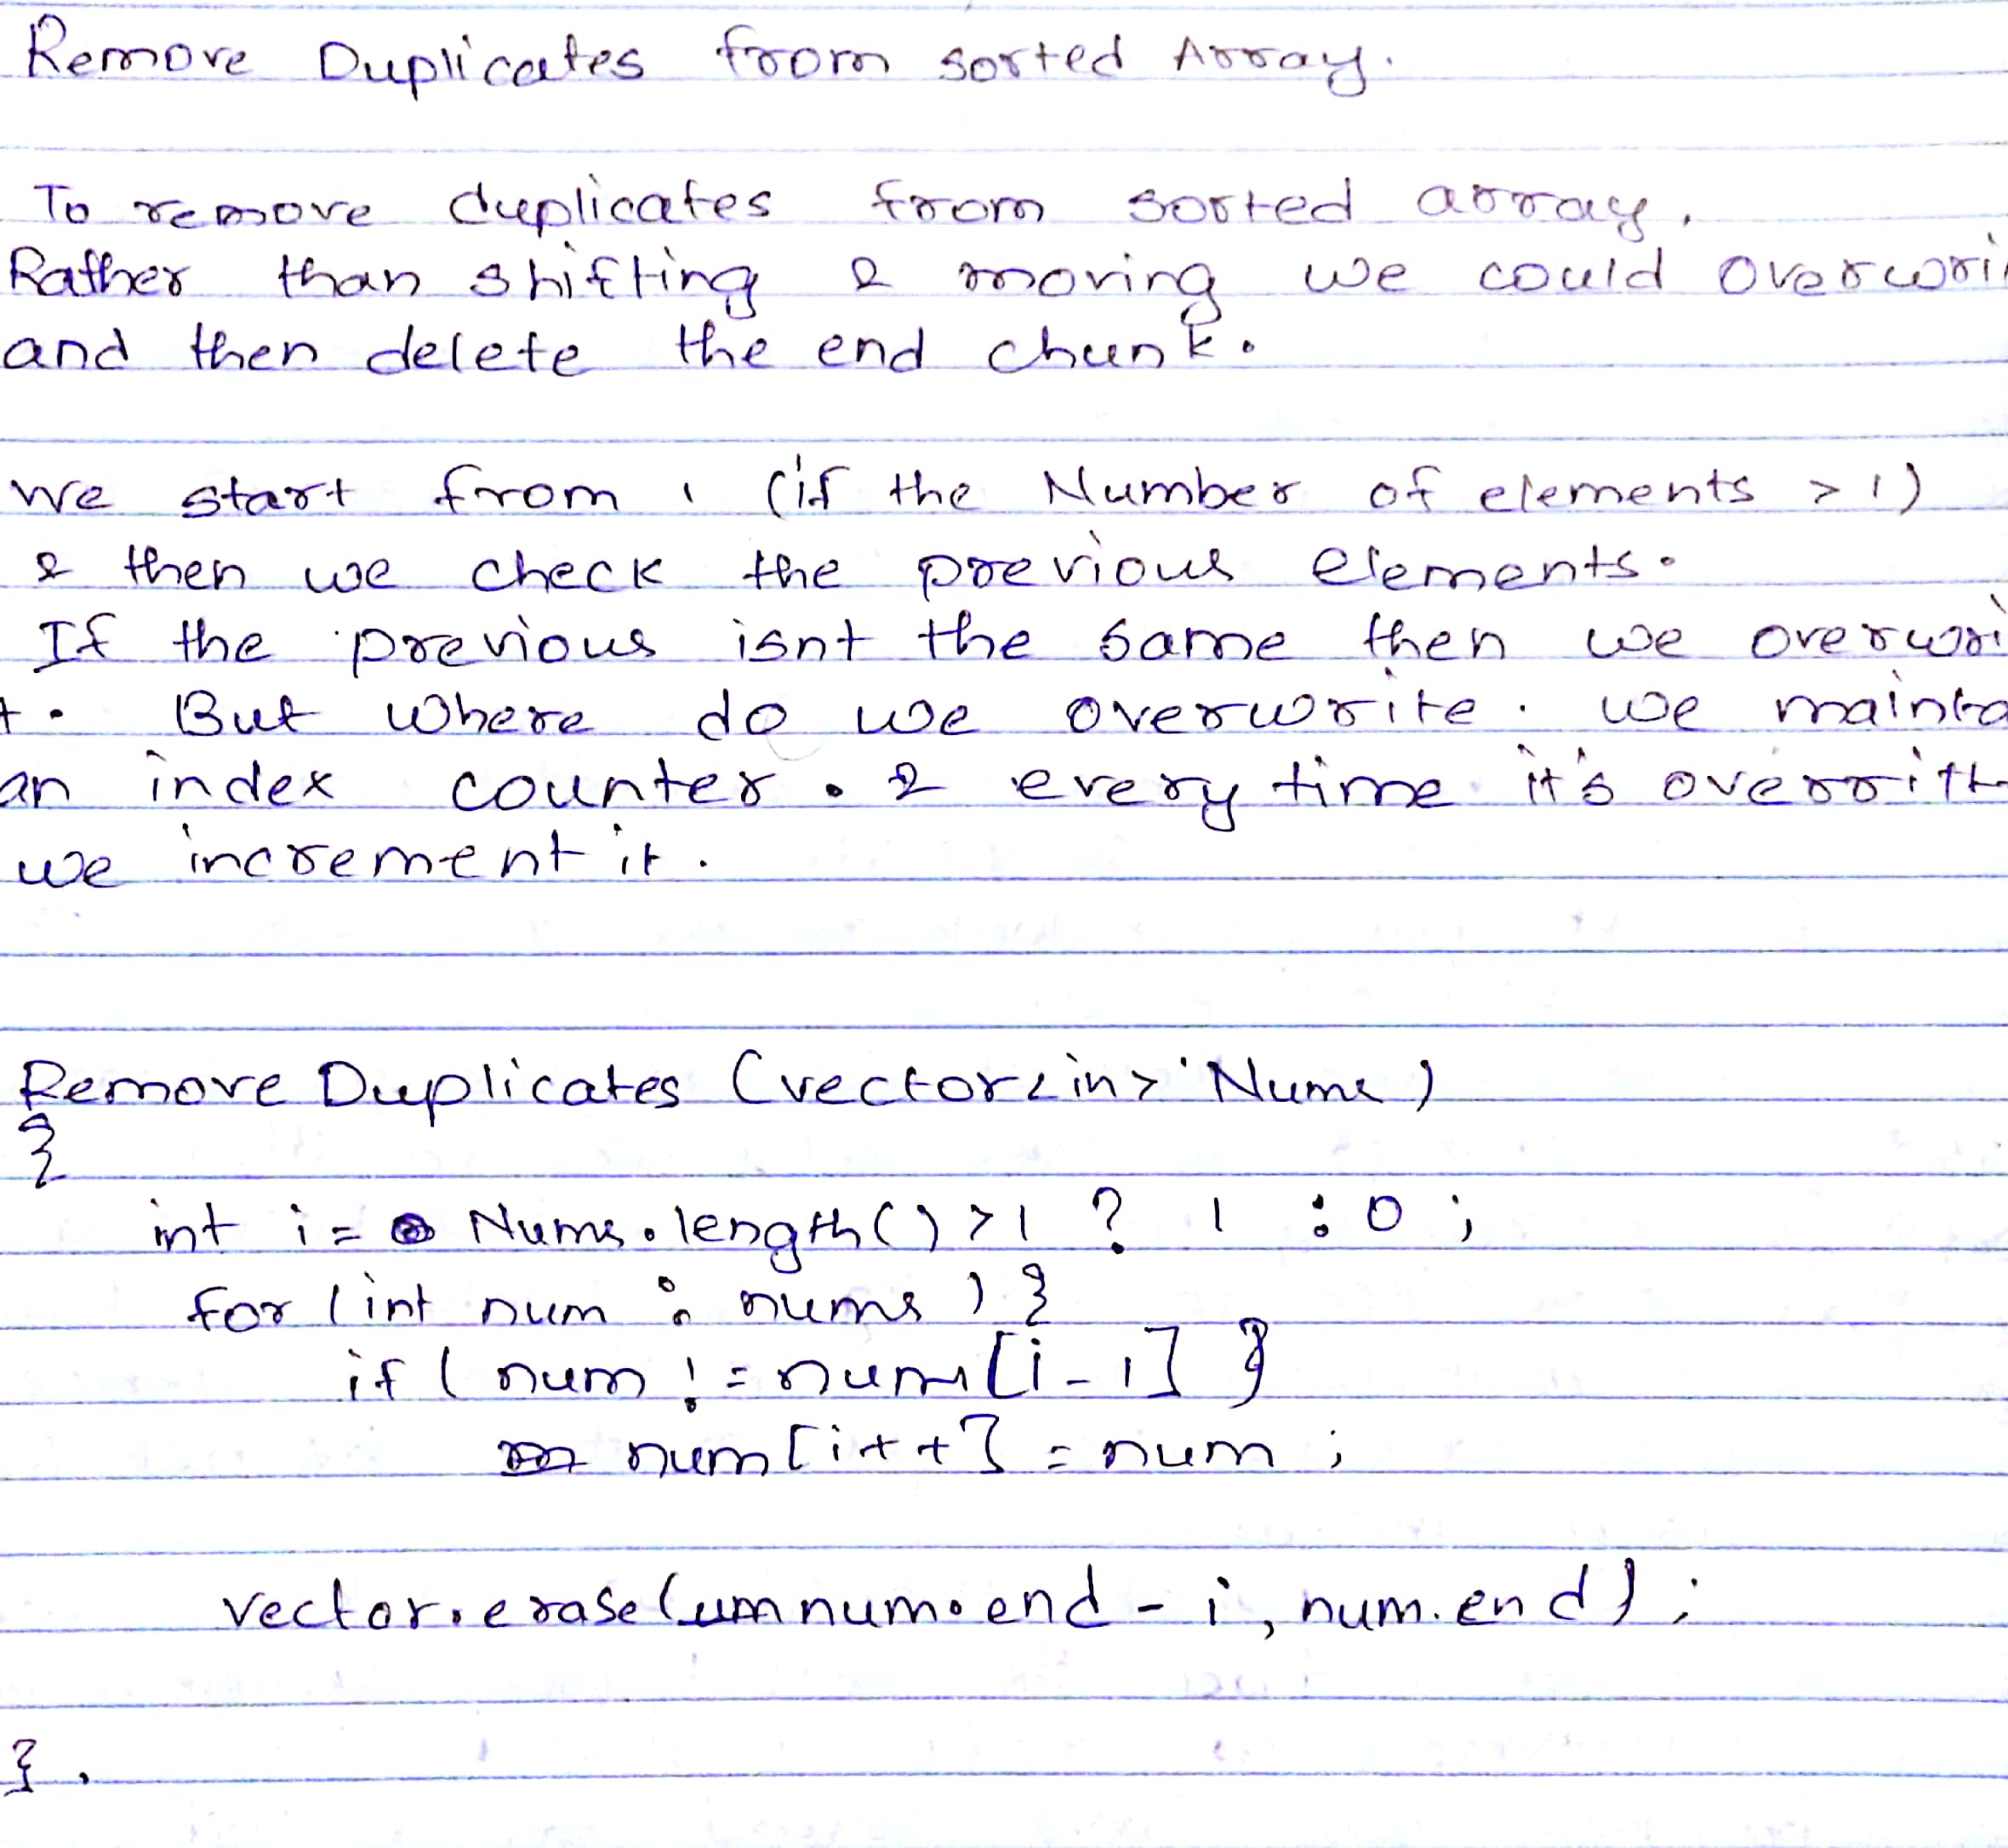 Remove Duplicates from sorted Array.
To remove duplicates from sorted array,
Rather than shifting & moving we could overwri
and then delete the end chunk.
We start from 1 (if the Number of elements > 1)
& then we check the previous elements.
If the previous isnt the same then we overwri
t. But where do we overwrite. We mainta
an index counter. & every time it's overritt
we increment it.
Remove Duplicates (vector<in> Nums)
{
int i = Nums.length() > 1 ? 1 : 0 ;
for (int num : nums ) {
if ( num != nums[i-1] }
num[i++] = num ;
vector.erase( num.end - i, num.end) ;
}.